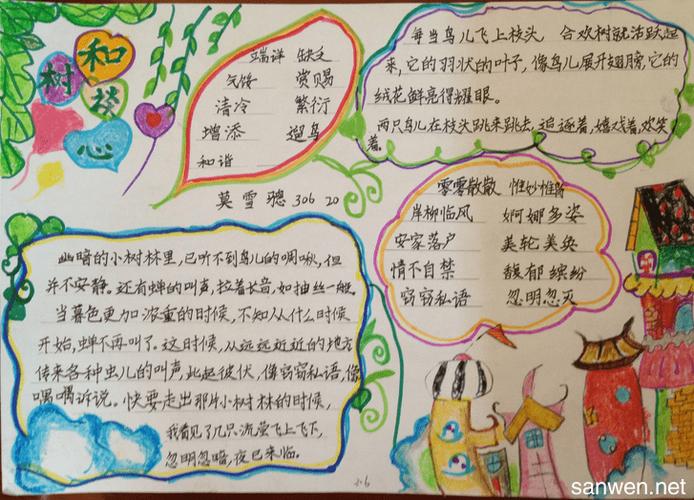 和
树 文
心
端详 缺乏
气馁 赏赐
清冷 繁衍
增添 遛鸟
和谐
莫雪骢 306 20
每当鸟儿飞上枝头 合欢树就活跃起
来,它的羽状的叶子,像鸟儿展开翅膀,它的
绒花鲜亮得耀眼。
两只鸟儿在枝头跳来跳去,追逐着,嬉戏着,欢笑
着。
零零散散 惟妙惟肖
岸柳临风 婀娜多姿
安家落户 美轮美奂
情不自禁 馥郁缤纷
窃窃私语 忽明忽灭
幽暗的小树林里,已听不到鸟儿的啁啾,但
并不安静。还有蝉的叫声,拉着长音,如抽丝一般。
当暮色更加浓重的时候,不知从什么时候
开始,蝉不再叫了。这时候,从远远近近的地方
传来各种虫儿的叫声,此起彼伏,像窃窃私语,像
喁喁诉说。快要走出那片小树林的时候,
我看见了几只流萤飞上飞下,
忽明忽暗,夜已来临。
sanwen.net